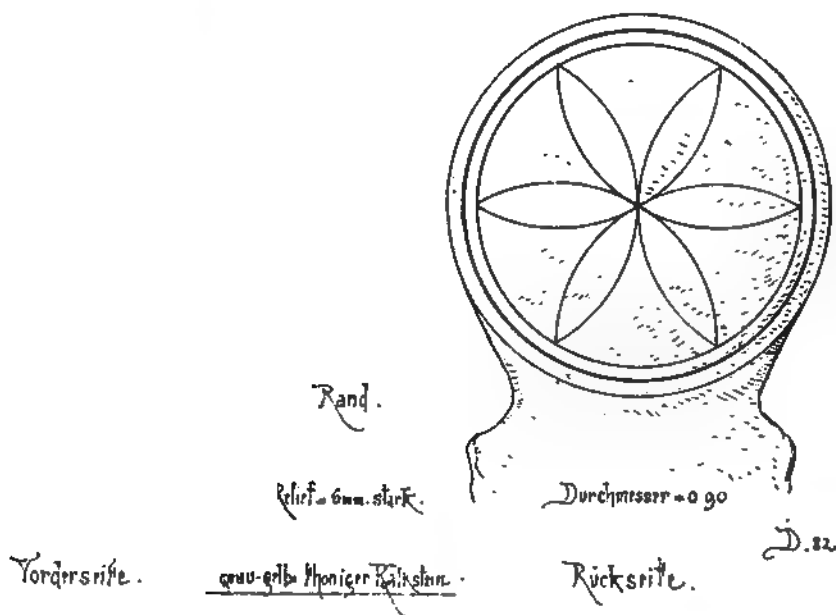 Rand.
Relief = 6mm. stark.
Durchmesser = 0 90
D. 82
Vorderseite.
grau-gelbe thoniger Kalkstein.
Rückseite.